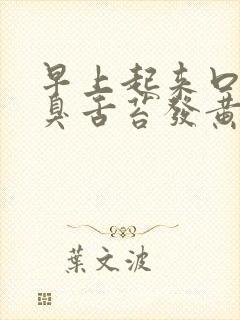 早上起来口
臭舌苔發黄
葉文波